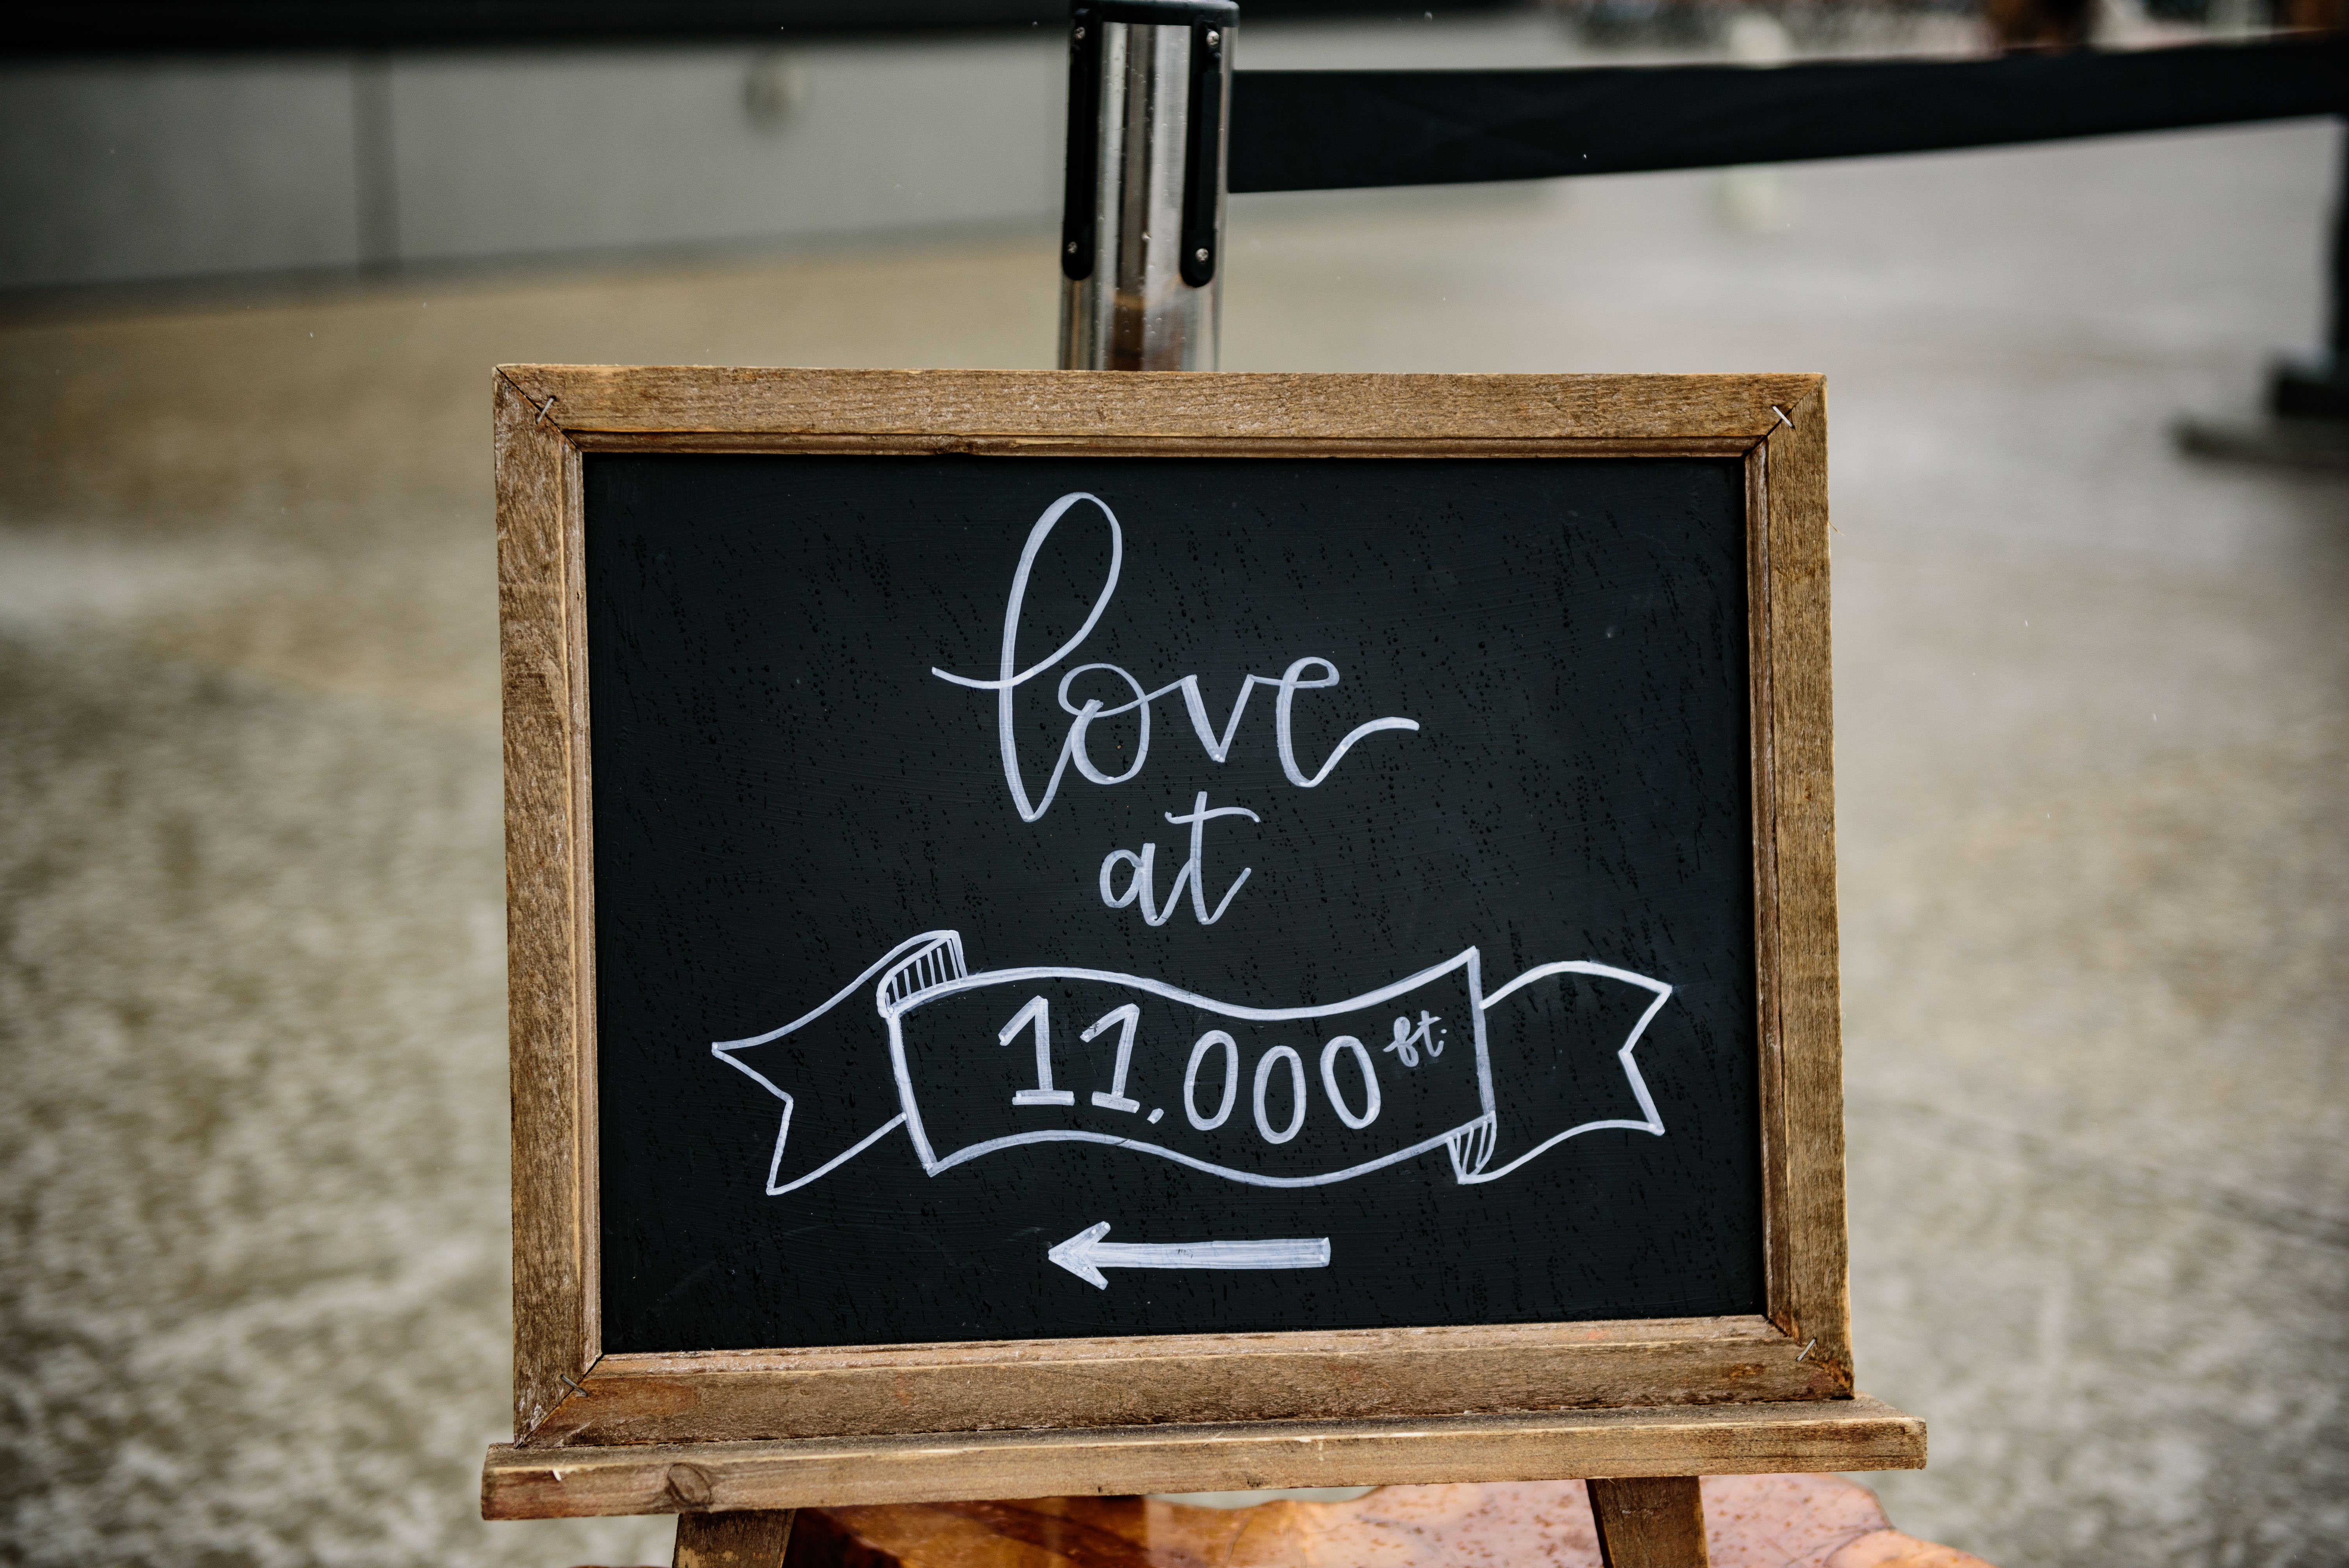 love
at
11,000 ft.